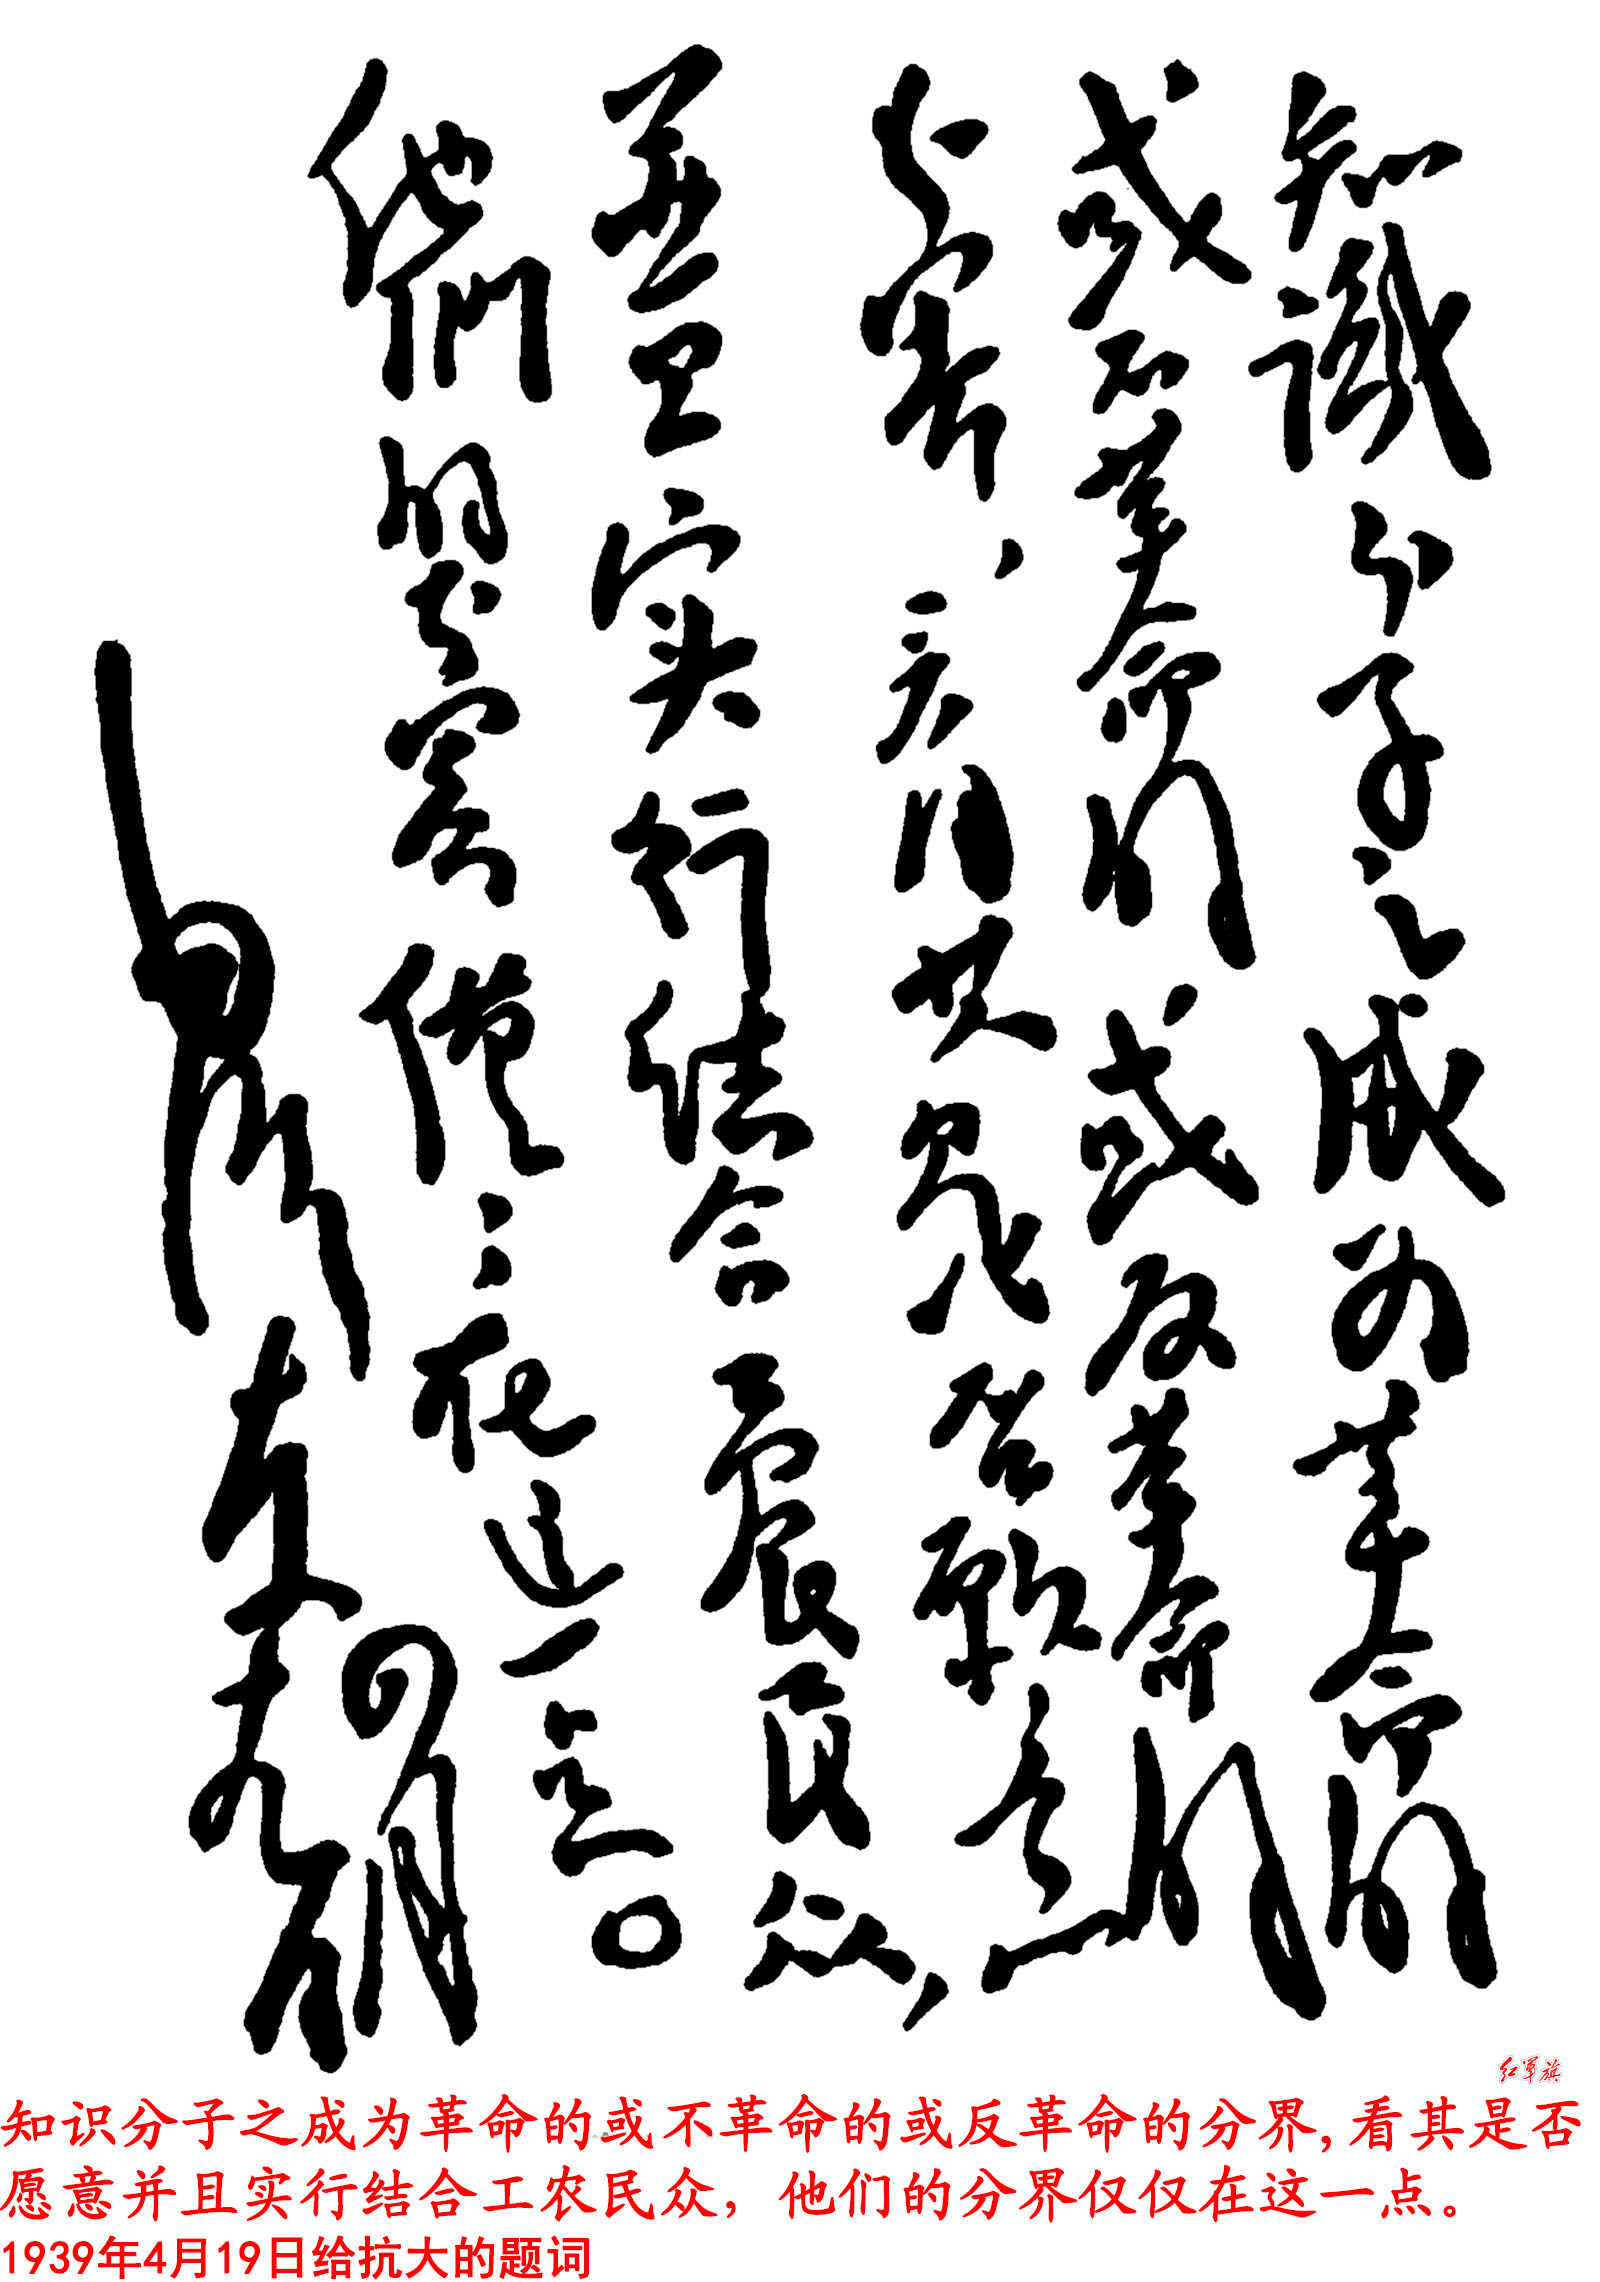 知識分子之成为革命的
或不革命的或反革命的
分界，看其是否愿意
並且实行结合工農民众，
他們的分界僅在这一点。
毛泽东
红军旗
知识分子之成为革命的或不革命的或反革命的分界,看其是否
愿意并且实行结合工农民众，他们的分界仅仅在这一点。
1939年4月19日给抗大的题词